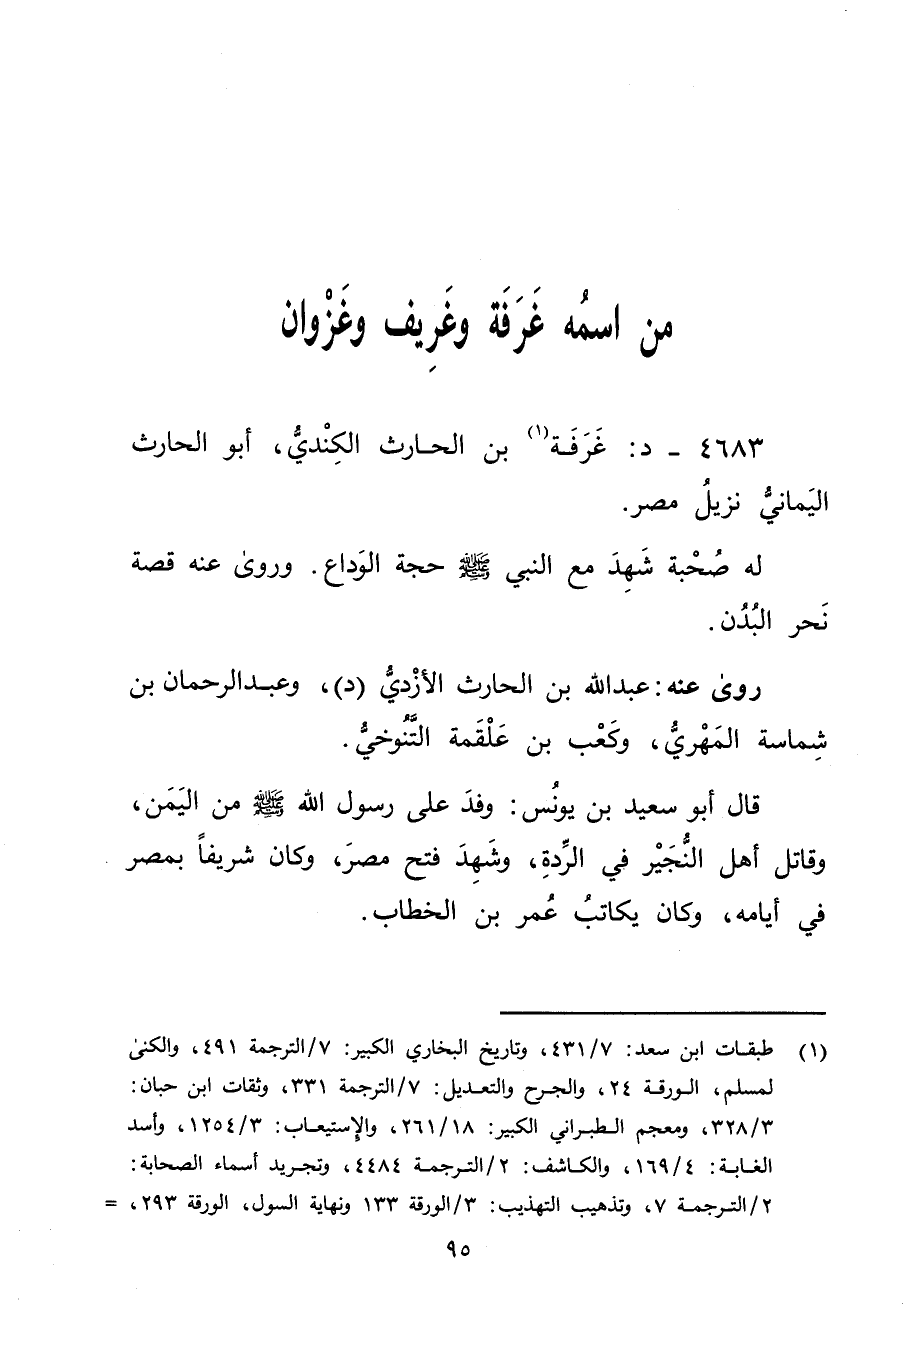 من اسمُه غَرَفَة وغَرِيف وغَزْوان
٤٦٨٣ - د: غَرَفَـة(١) بن الحـارث الكِنْديُّ، أبو الحارث
اليَمانيُّ نزيلُ مصر.
له صُحْبة شَهِدَ مع النبي ﷺ حجة الوَداع. وروىٰ عنه قصة
نَحر البُدُن.
روىٰ عنه: عبدالله بن الحارث الأزْديُّ (د)، وعبـدالرحمان بن
شِماسة المَهْريُّ، وكَعْب بن عَلْقَمة التَّنُوخيُّ.
قال أبو سعيد بن يونُس: وفدَ على رسول الله ﷺ من اليَمَن،
وقاتل أهل النُّجَيْر في الرِّدةِ، وشَهِدَ فتح مصرَ، وكان شريفاً بمصر
في أيامه، وكان يكاتبُ عُمر بن الخطاب.
(١) طبقـات ابن سعد: ٤٣١/٧، وتاريخ البخاري الكبير: ٧/الترجمة ٤٩١، والكنىٰ
لمسلم، الـورقـة ٢٤، والجـرح والتعـديل: ٧/الترجمة ٣٣١، وثقات ابن حبان:
٣٢٨/٣، ومعجم الـطبـراني الكبير: ٢٦١/١٨، والإستيعـاب: ١٢٥٤/٣، وأسد
الغـابـة: ١٦٩/٤، والكـاشف: ٢/التـرجمـة ٤٤٨٤، وتجريد أسماء الصحابة:
٢/التـرجمـة ٧، وتذهيب التهذيب: ٣/الورقة ١٣٣ ونهاية السول، الورقة ٢٩٣، =
٩٥